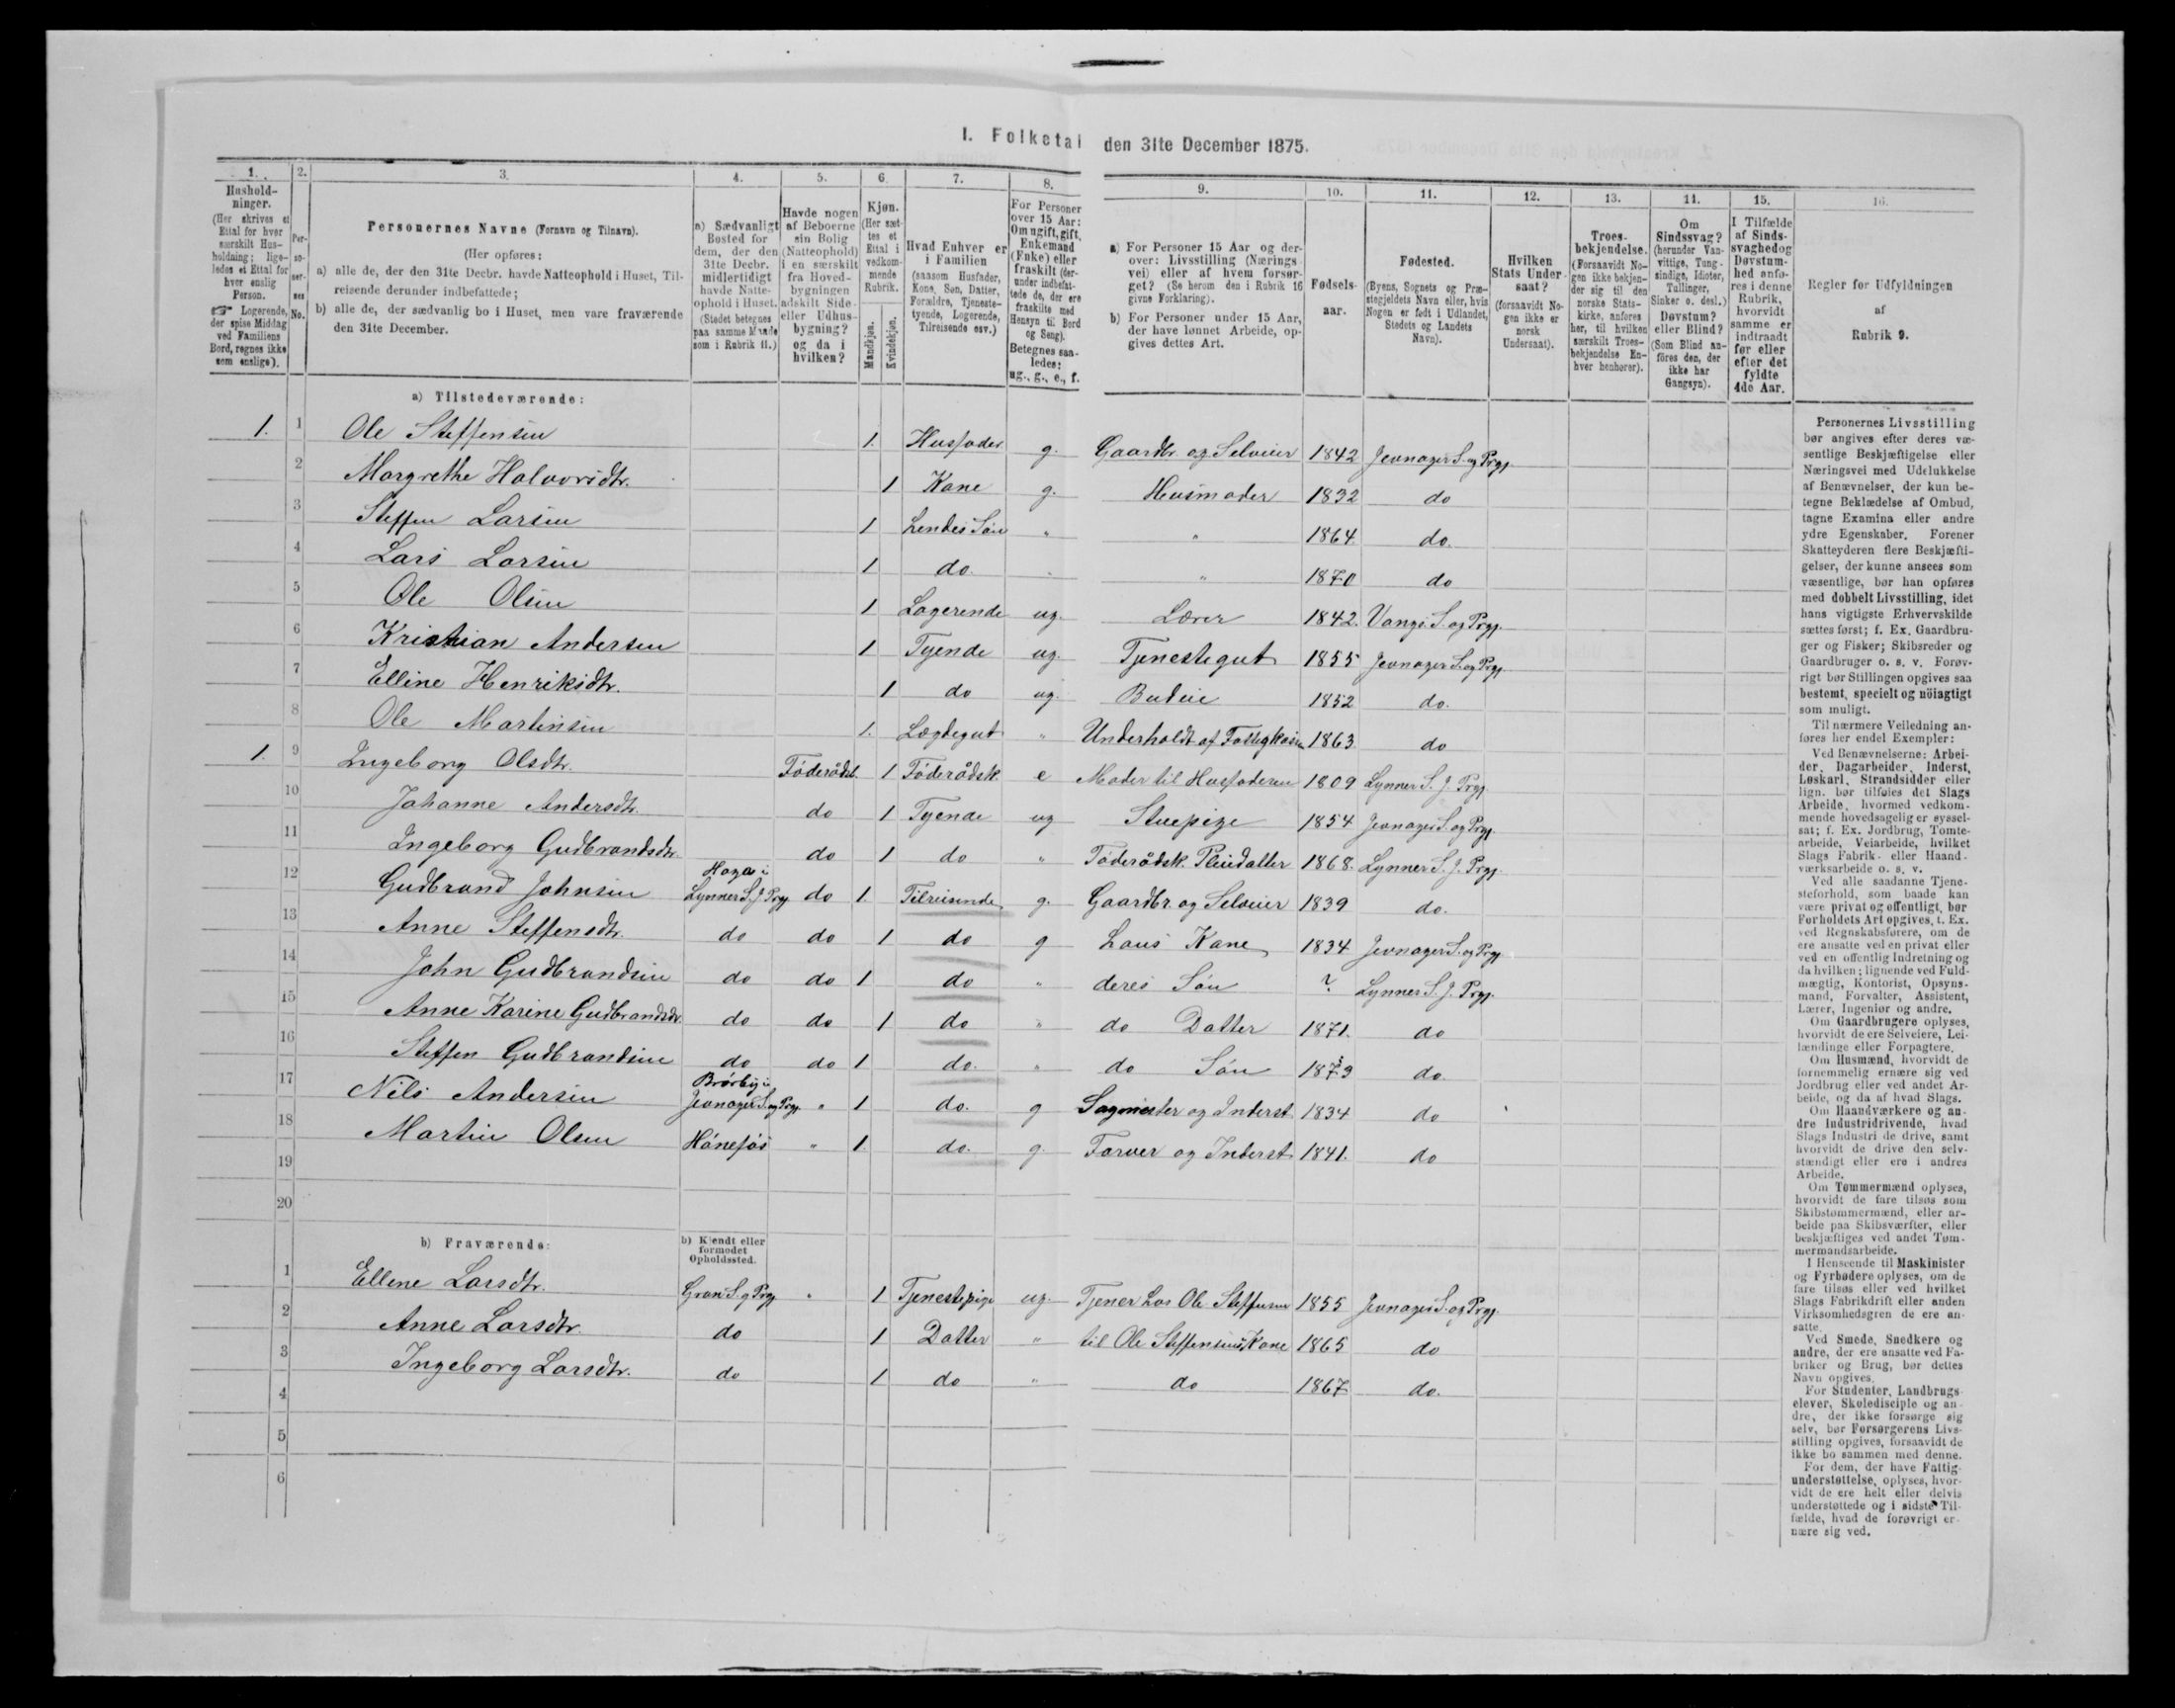 I. Folketal den 31te December 1875.
1. 2. 3. 4. 5. 6. 7. 8. 9. 10. 11. 12. 13. 11. 15. 16.
Hushold-
ninger.
(Her skrives et
Ettal for hver
særskilt Hus-
holdning; lige-
ledes et Ettal for
hver enslig
Person.
☞ Logerende,
der spise Middag
ved Familiens
Bord, regnes ikke
som enslige).
Per-
so-
ner-
nes
No.
Personernes Navne (Fornavn og Tilnavn).
(Her opføres:
a) alle de, der den 31te Decbr. havde Natteophold i Huset, Til-
reisende derunder indbefattede;
b) alle de, der sædvanlig bo i Huset, men vare fraværende
den 31te December.
a) Sædvanligt
Bosted for
dem, der den
31te Decbr.
midlertidigt
havde Natte-
ophold i Huset.
(Stedet betegnes
paa samme Maade
som i Rubrik 11.)
Havde nogen
af Beboerne
sin Bolig
(Natteophold)
i en særskilt
fra Hoved-
bygningen
adskilt Side-
eller Udhus-
bygning?
og da i
hvilken?
Kjøn.
(Her sæt-
tes et
Ettal i
vedkom-
mende
Rubrik.
Mandkjøn.
Kvindekjøn.
Hvad Enhver er
i Familien
(saasom Husfader,
Kone, Søn, Datter,
Forældre, Tjeneste-
tyende, Logerende,
Tilreisende osv.)
For Personer
over 15 Aar:
Om ugift, gift,
Enkemand
(Enke) eller
fraskilt (der-
under indbefat-
tede de, der ere
fraskilte med
Hensyn til Bord
og Seng).
Betegnes saa-
ledes:
ug., g., e., f.
a) For Personer 15 Aar og der-
over: Livsstilling (Nærings-
vei) eller af hvem forsør-
get? (Se herom den i Rubrik 16
givne Forklaring).
b) For Personer under 15 Aar,
der have lønnet Arbeide, op-
gives dettes Art.
Fødsels-
aar.
Fødested.
(Byens, Sognets og Præ-
stegjeldets Navn eller, hvis
Nogen er født i Udlandet,
Stedets og Landets
Navn).
Hvilken
Stats Under-
saat?
(forsaavidt No-
gen ikke er
norsk
Undersaat).
Troes-
bekjendelse.
(Forsaavidt No-
gen ikke bekjen-
der sig til den
norske Stats-
kirke, anføres
her, til hvilken
særskilt Troes-
bekjendelse En-
hver henhører).
Om
Sindssvag?
(herunder Van-
vittige, Tung-
sindige, Idioter,
Tullinger,
Sinker o. desl.)
Døvstum?
eller Blind?
(Som Blind an-
føres den, der
ikke har
Gangsyn).
I Tilfælde
af Sinds-
svaghed og
Døvstum-
hed anfø-
res i denne
Rubrik,
hvorvidt
samme er
indtraadt
før eller
efter det
fyldte
4de Aar.
Regler for Udfyldningen
af
Rubrik 9.
a) Tilstedeværende:
1. 1 Ole Steffensen 1. Husfader g. Gaardbr. og Selveier 1842 Jevnager S. og Prgj.
2 Margrethe Halvorsdtr. 1 Kone g. Husmoder 1832 do
3 Steffen Larsen 1 hendes Søn " " 1864 do.
4 Lars Larsen 1 do. " " 1870 do
5 Ole Olsen 1 Logerende ug. Lærer 1842. Vangs S. og Prgj.
6 Kristian Andersen 1 Tyende ug. Tjenestegut 1855 Jevnager S. og Prgj.
7 Elline Henriksdtr. 1 do ug. Budeie 1852 do.
8 Ole Martinsen 1. Lægdegut " Underholdt af Fattigkassen 1863 do
1. 9 Ingeborg Olsdtr. Föderådst. 1 Föderådsk e Moder til Husfaderen 1809 Lynner S. J. Prgj.
10 Johanne Andersdtr. do 1 Tyende ug Stuepige 1854 Jevnager S. og Prgj.
11 Ingeborg Gudbrandsdtr. do 1 do " Föderådsk. Pleiedatter 1868. Lynner S. J. Prgj.
12 Gudbrand Johnsen Haga i Lynner S. J. Prgj do 1. Tilreisende g. Gaardbr. og Selveier 1839 do.
13 Anne Steffensdtr. do do 1 do g hans Kone 1834 Jevnager S. og Prgj.
14 John Gudbrandsen do do 1 do " deres Sön ? Lynner S. J. Prgj.
15 Anne Karine Gudbrandsdtr. do do 1 do " do Datter 1871. do
16 Steffen Gudbrandsen do do 1 do. " do Sön 1873 do.
17 Nils Andersen Brörby i Jevnager S. og Prgj. " 1 do. g Sagmester og Inderst 1834 do
18 Martin Olsen Hönefös " 1. do. g. Farver og Inderst 1841. do
19
20
b) Fraværende:
b) Kjendt eller
formodet
Opholdssted.
1 Ellene Larsdtr. Gran S. og Prgj " 1 Tjenestepige ug. Tjener hos Ole Steffensen 1855 Jevnager S. og Prgj.
2 Anne Larsdtr. do 1 Datter " til Ole Steffensens Kone 1865 do
3 Ingeborg Larsdtr. do 1 do " do 1867 do.
4
5
6
Personernes Livsstilling
bør angives efter deres væ-
sentlige Beskjæftigelse eller
Næringsvei med Udelukkelse
af Benævnelser, der kun be-
tegne Beklædelse af Ombud,
tagne Examina eller andre
ydre Egenskaber. Forener
Skatteyderen flere Beskjæfti-
gelser, der kunne ansees som
væsentlige, bør han opføres
med dobbelt Livsstilling, idet
hans vigtigste Erhvervskilde
sættes først; f. Ex. Gaardbru-
ger og Fisker; Skibsreder og
Gaardbruger o. s. v. Forøv-
rigt bør Stillingen opgives saa
bestemt, specielt og nöiagtigt
som muligt.
Til nærmere Veiledning an-
føres her endel Exempler:
Ved Benævnelserne: Arbei-
der, Dagarbeider, Inderst,
Løskarl, Strandsidder eller
lign. bør tilføies det Slags
Arbeide, hvormed vedkom-
mende hovedsagelig er syssel-
sat; f. Ex. Jordbrug, Tomte-
arbeide, Veiarbeide, hvilket
Slags Fabrik- eller Haand-
værksarbeide o. s. v.
Ved alle saadanne Tjene-
steforhold, som baade kan
være privat og offentligt, bør
Forholdets Art opgives, t. Ex.
ved Regnskabsførere, om de
ere ansatte ved en privat eller
ved en offentlig Indretning og
da hvilken; lignende ved Fuld-
mægtig, Kontorist, Opsyns-
mand, Forvalter, Assistent,
Lærer, Ingeniør og andre.
Om Gaardbrugere oplyses,
hvorvidt de ere Selveiere, Lei-
lændinge eller Forpagtere.
Om Husmænd, hvorvidt de
fornemmelig ernære sig ved
Jordbrug eller ved andet Ar-
beide, og da af hvad Slags.
Om Haandværkere og an-
dre Industridrivende, hvad
Slags Industri de drive, samt
hvorvidt de drive den selv-
stændigt eller ere i andres
Arbeide.
Om Tømmermænd oplyses,
hvorvidt de fare tilsøs som
Skibstømmermænd, eller ar-
beide paa Skibsværfter, eller
beskjæftiges ved andet Tøm-
mermandsarbeide.
I Henseende til Maskinister
og Fyrbødere oplyses, om de
fare tilsøs eller ved hvilket
Slags Fabrikdrift eller anden
Virksomhedsgren de ere an-
satte.
Ved Smede, Snedkere og
andre, der ere ansatte ved Fa-
briker og Brug, bør dettes
Navn opgives.
For Studenter, Landbrugs-
elever, Skoledisciple og an-
dre, der ikke forsørge sig
selv, bør Forsørgerens Livs-
stilling opgives, forsaavidt de
ikke bo sammen med denne.
For dem, der have Fattig-
understøttelse, oplyses, hvor-
vidt de ere helt eller delvis
understøttede og i sidste Til-
fælde, hvad de forøvrigt er-
nære sig ved.